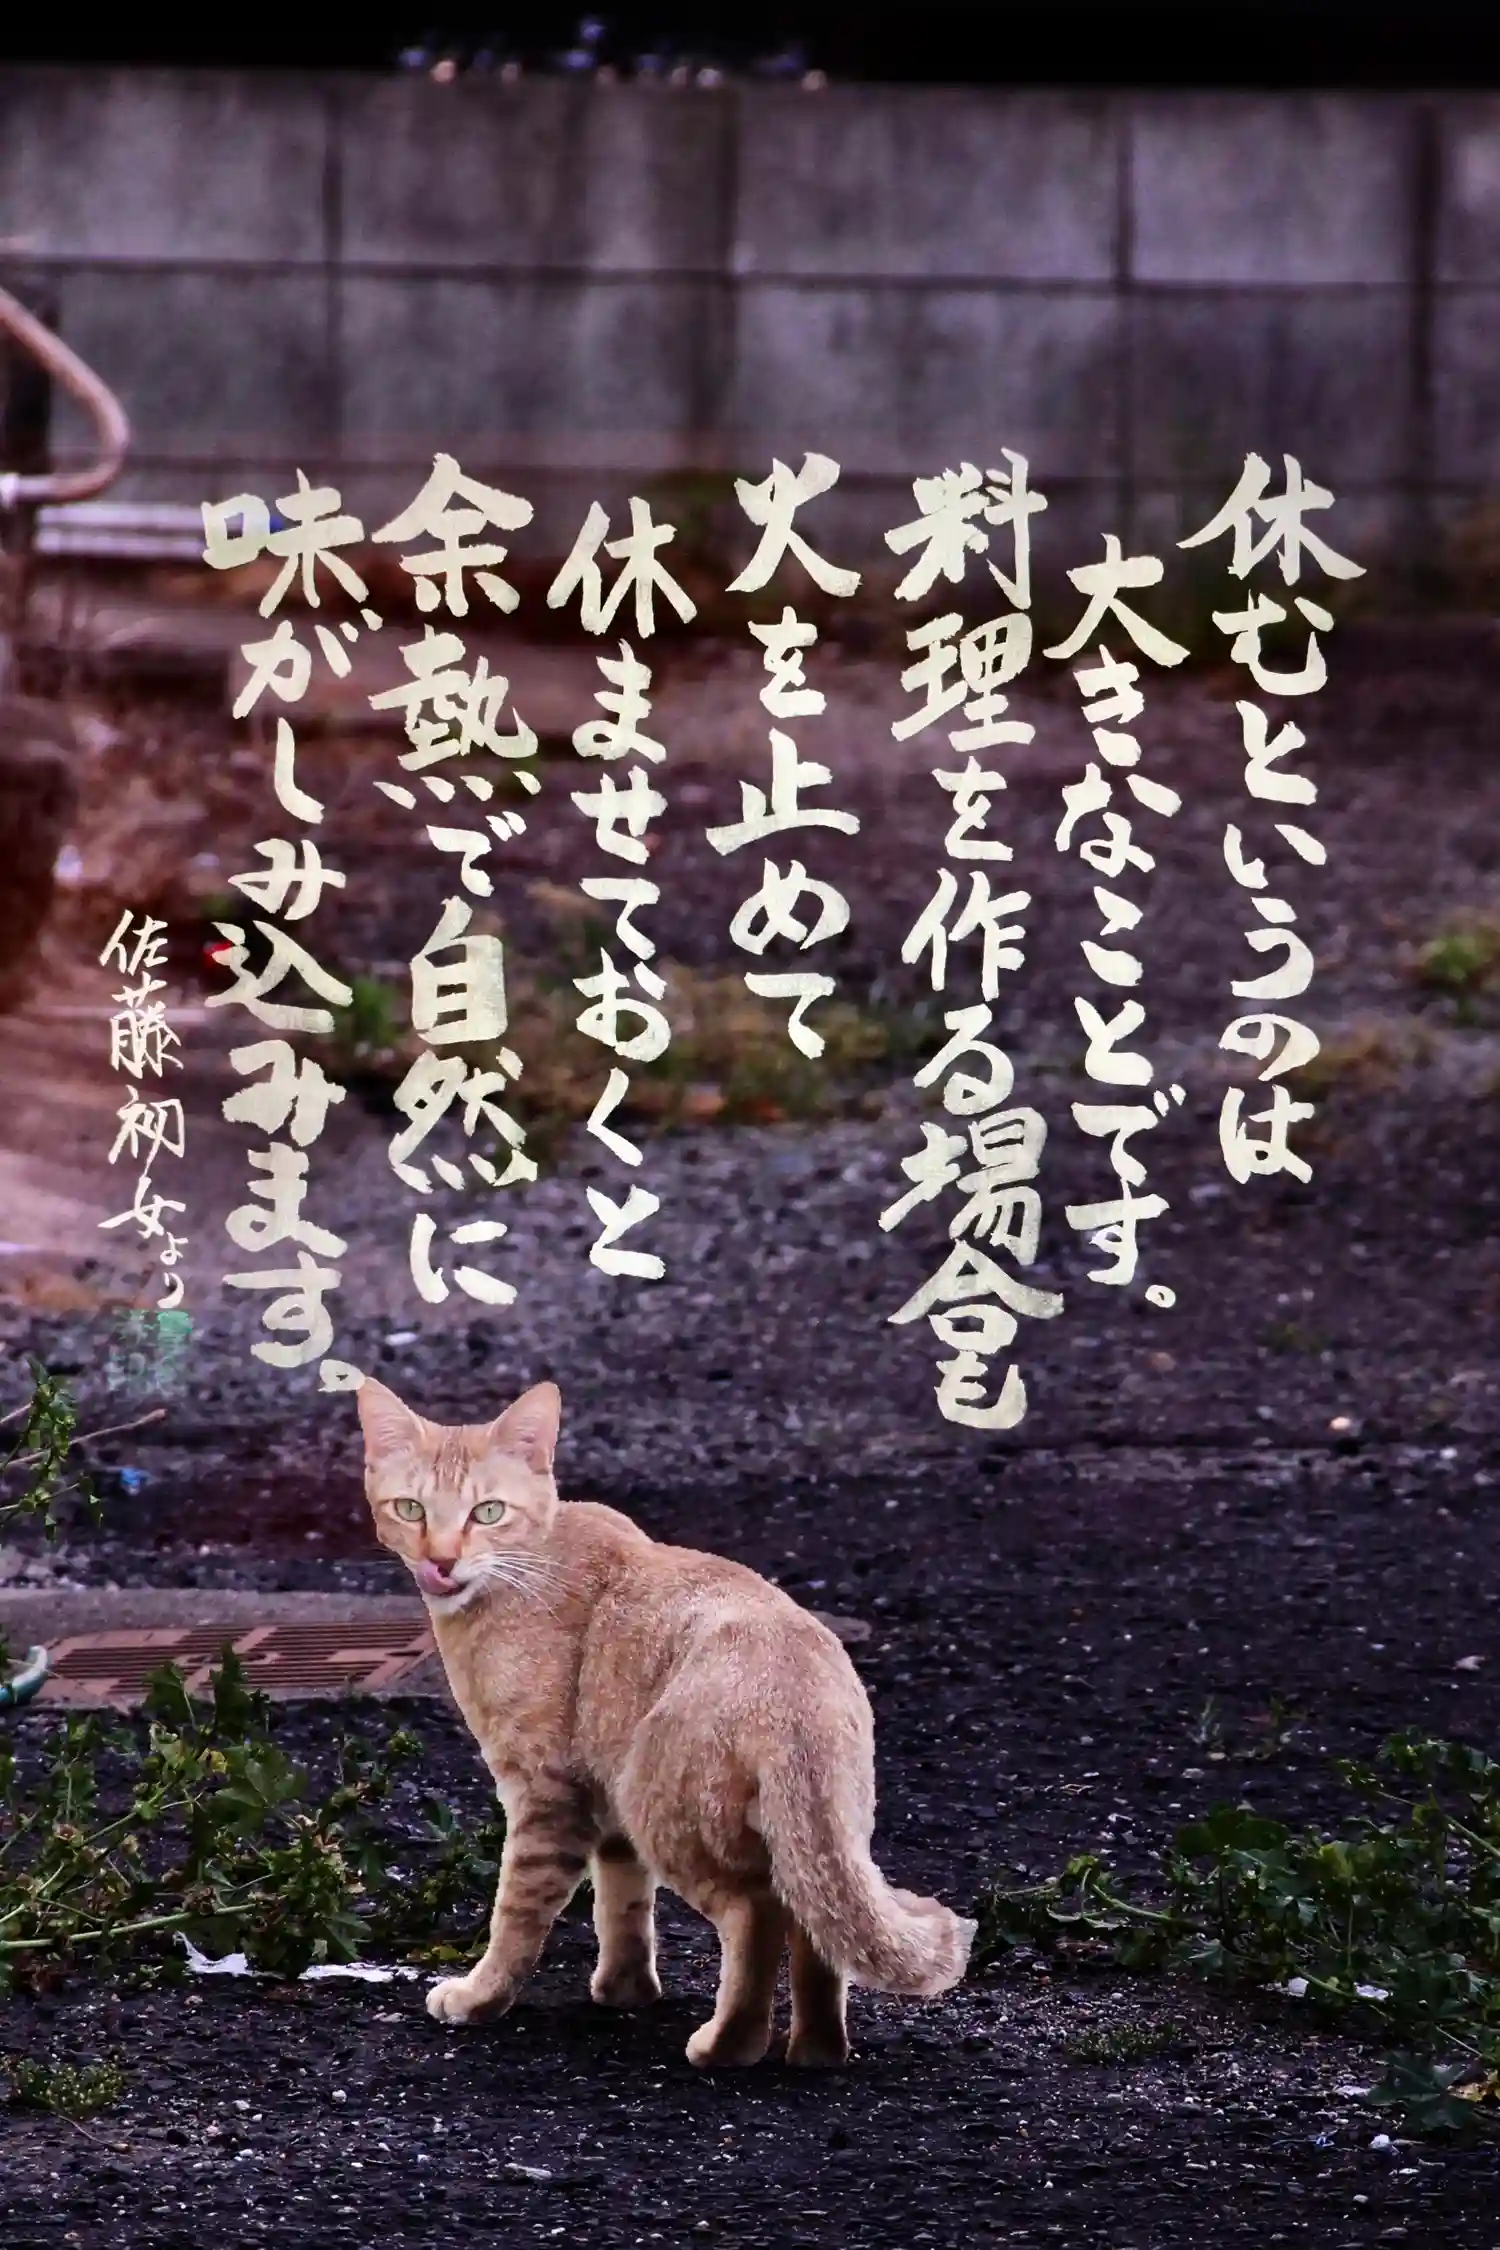 休むというのは
大きなことです。
料理を作る場合も
火を止めて
休ませておくと
余熱で自然に
味がしみ込みます。
佐藤初女より